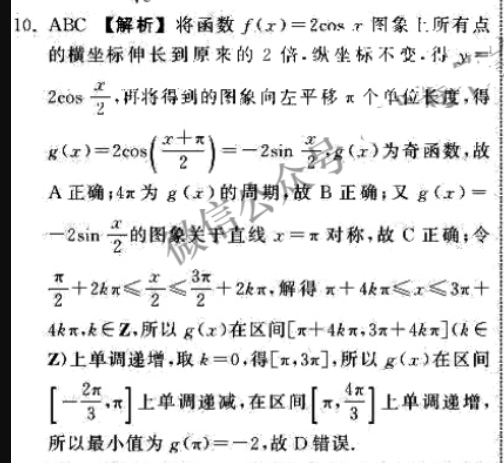 10. ABC 【解析】将函数 f(x)=2cos x 图象上所有点
的横坐标伸长到原来的 2 倍,纵坐标不变,得 y=
2cos x/2,再将得到的图象向左平移 π 个单位长度,得
g(x)=2cos((x+π)/2)=-2sin x/2,g(x)为奇函数,故
A 正确;4π 为 g(x)的周期,故 B 正确;又 g(x)=
-2sin x/2 的图象关于直线 x=π 对称,故 C 正确;令
π/2+2kπ≤x/2≤3π/2+2kπ,解得 π+4kπ≤x≤3π+
4kπ,k∈Z,所以 g(x)在区间[π+4kπ,3π+4kπ](k∈
Z)上单调递增,取 k=0,得[π,3π],所以 g(x)在区间
[-2π/3,π]上单调递减,在区间[π,4π/3]上单调递增,
所以最小值为 g(π)=-2,故 D 错误.
微信公众号